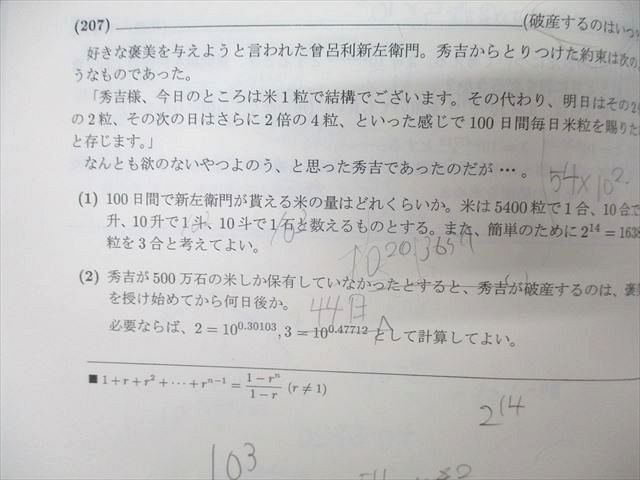 (207)
(破産するのはいつ
好きな褒美を与えようと言われた曾呂利新左衛門。秀吉からとりつけた約束は次の
うなものであった。
「秀吉様、今日のところは米1粒で結構でございます。その代わり、明日はその2
の2粒、その次の日はさらに2倍の4粒、といった感じで100日間毎日米粒を賜りた
と存じます。」
なんとも欲のないやつよのう、と思った秀吉であったのだが…。
54×10²
(1) 100日間で新左衛門が貰える米の量はどれくらいか。米は5400粒で1合、10合で
升、10升で1斗、10斗で1石と数えるものとする。また、簡単のために2¹⁴=1638
粒を3合と考えてよい。
(2) 秀吉が500万石の米しか保有していなかったとすると、秀吉が破産するのは、褒
を授け始めてから何日後か。
44日
必要ならば、2=10^0.30103, 3=10^0.47712 として計算してよい。
■ 1+r+r²+⋯+rⁿ⁻¹ = (1−rⁿ)/(1−r) (r≠1)
2¹⁴
10³